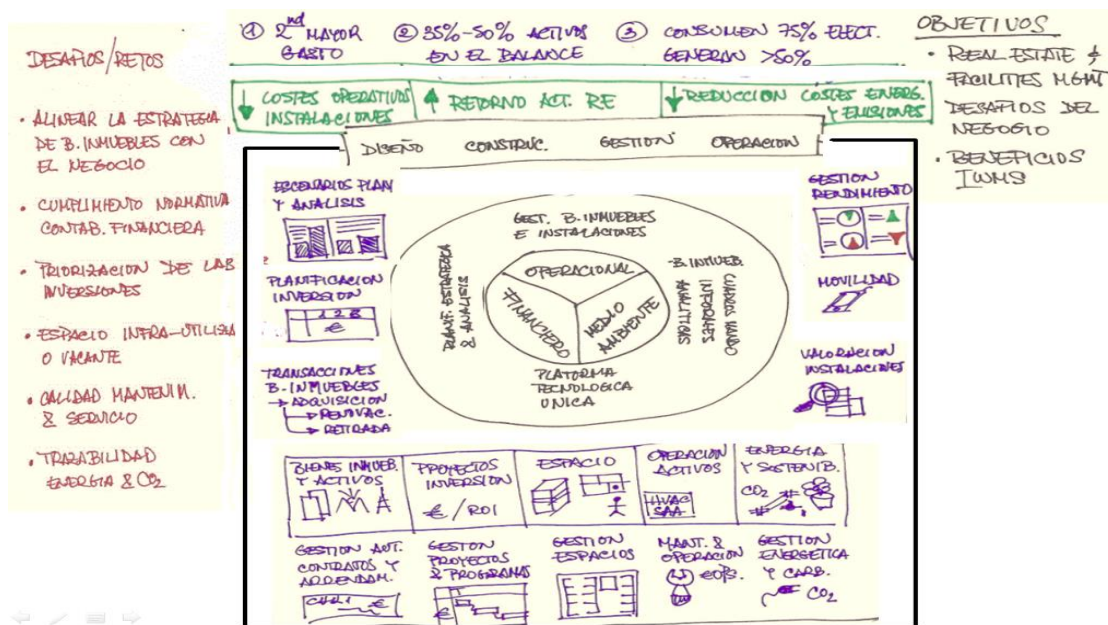 DESAFIOS/RETOS
• ALINEAR LA ESTRATEGIA
DE B. INMUEBLES CON
EL NEGOCIO
• CUMPLIMIENTO NORMATIVA
CONTAB. FINANCIERA
• PRIORIZACION DE LAS
INVERSIONES
• ESPACIO INFRA-UTILIZA
O VACANTE
• CALIDAD MANTENIM.
& SERVICIO
• TRAZABILIDAD
ENERGIA & CO2
① 2nd MAYOR
GASTO
② 35%-50% ACTIVOS
EN EL BALANCE
③ CONSUMEN 75% ELECT.
GENERAN >50%
↓ COSTES OPERATIVOS
INSTALACIONES
↑ RETORNO ACT. RE
↓ REDUCCION COSTES ENERG.
Y EMISIONES
DISEÑO CONSTRUC. GESTION OPERACION
OBJETIVOS
• REAL ESTATE &
FACILITIES MGMT
DESAFIOS DEL
NEGOGIO
• BENEFICIOS
IWMS
ESCENARIOS PLAN
Y ANALISIS
PLANIFICACION
INVERSION
1 2 3
€
TRANSACCIONES
B. INMUEBLES
→ ADQUISICION
→ RENOVAC.
→ RETIRADA
GEST. B. INMUEBLES
E INSTALACIONES
PLANIF. ESTRATEGICA
& ANALISIS
OPERACIONAL
FINANCIERO
MEDIO
AMBIENTE
B. INMUEB.
CUADROS MANDO
INFORMES
ANALITICAS
PLATORMA
TECNOLOGICA
UNICA
GESTION
RENDIMIENTO
MOVILIDAD
VALORACION
INSTALACIONES
BIENES INMUEB.
Y ACTIVOS
PROYECTOS
INVERSION
€/ROI
ESPACIO
OPERACION
ACTIVOS
HVAC
SAA
ENERGIA
Y SOSTENIB.
CO2
GESTION AUT.
CONTRATOS Y
ARRENDAM.
€
GESTION
PROYECTOS
& PROGRAMAS
€
GESTION
ESPACIOS
MANT. &
OPERACION
GESTION
ENERGETICA
Y CARB.
CO2